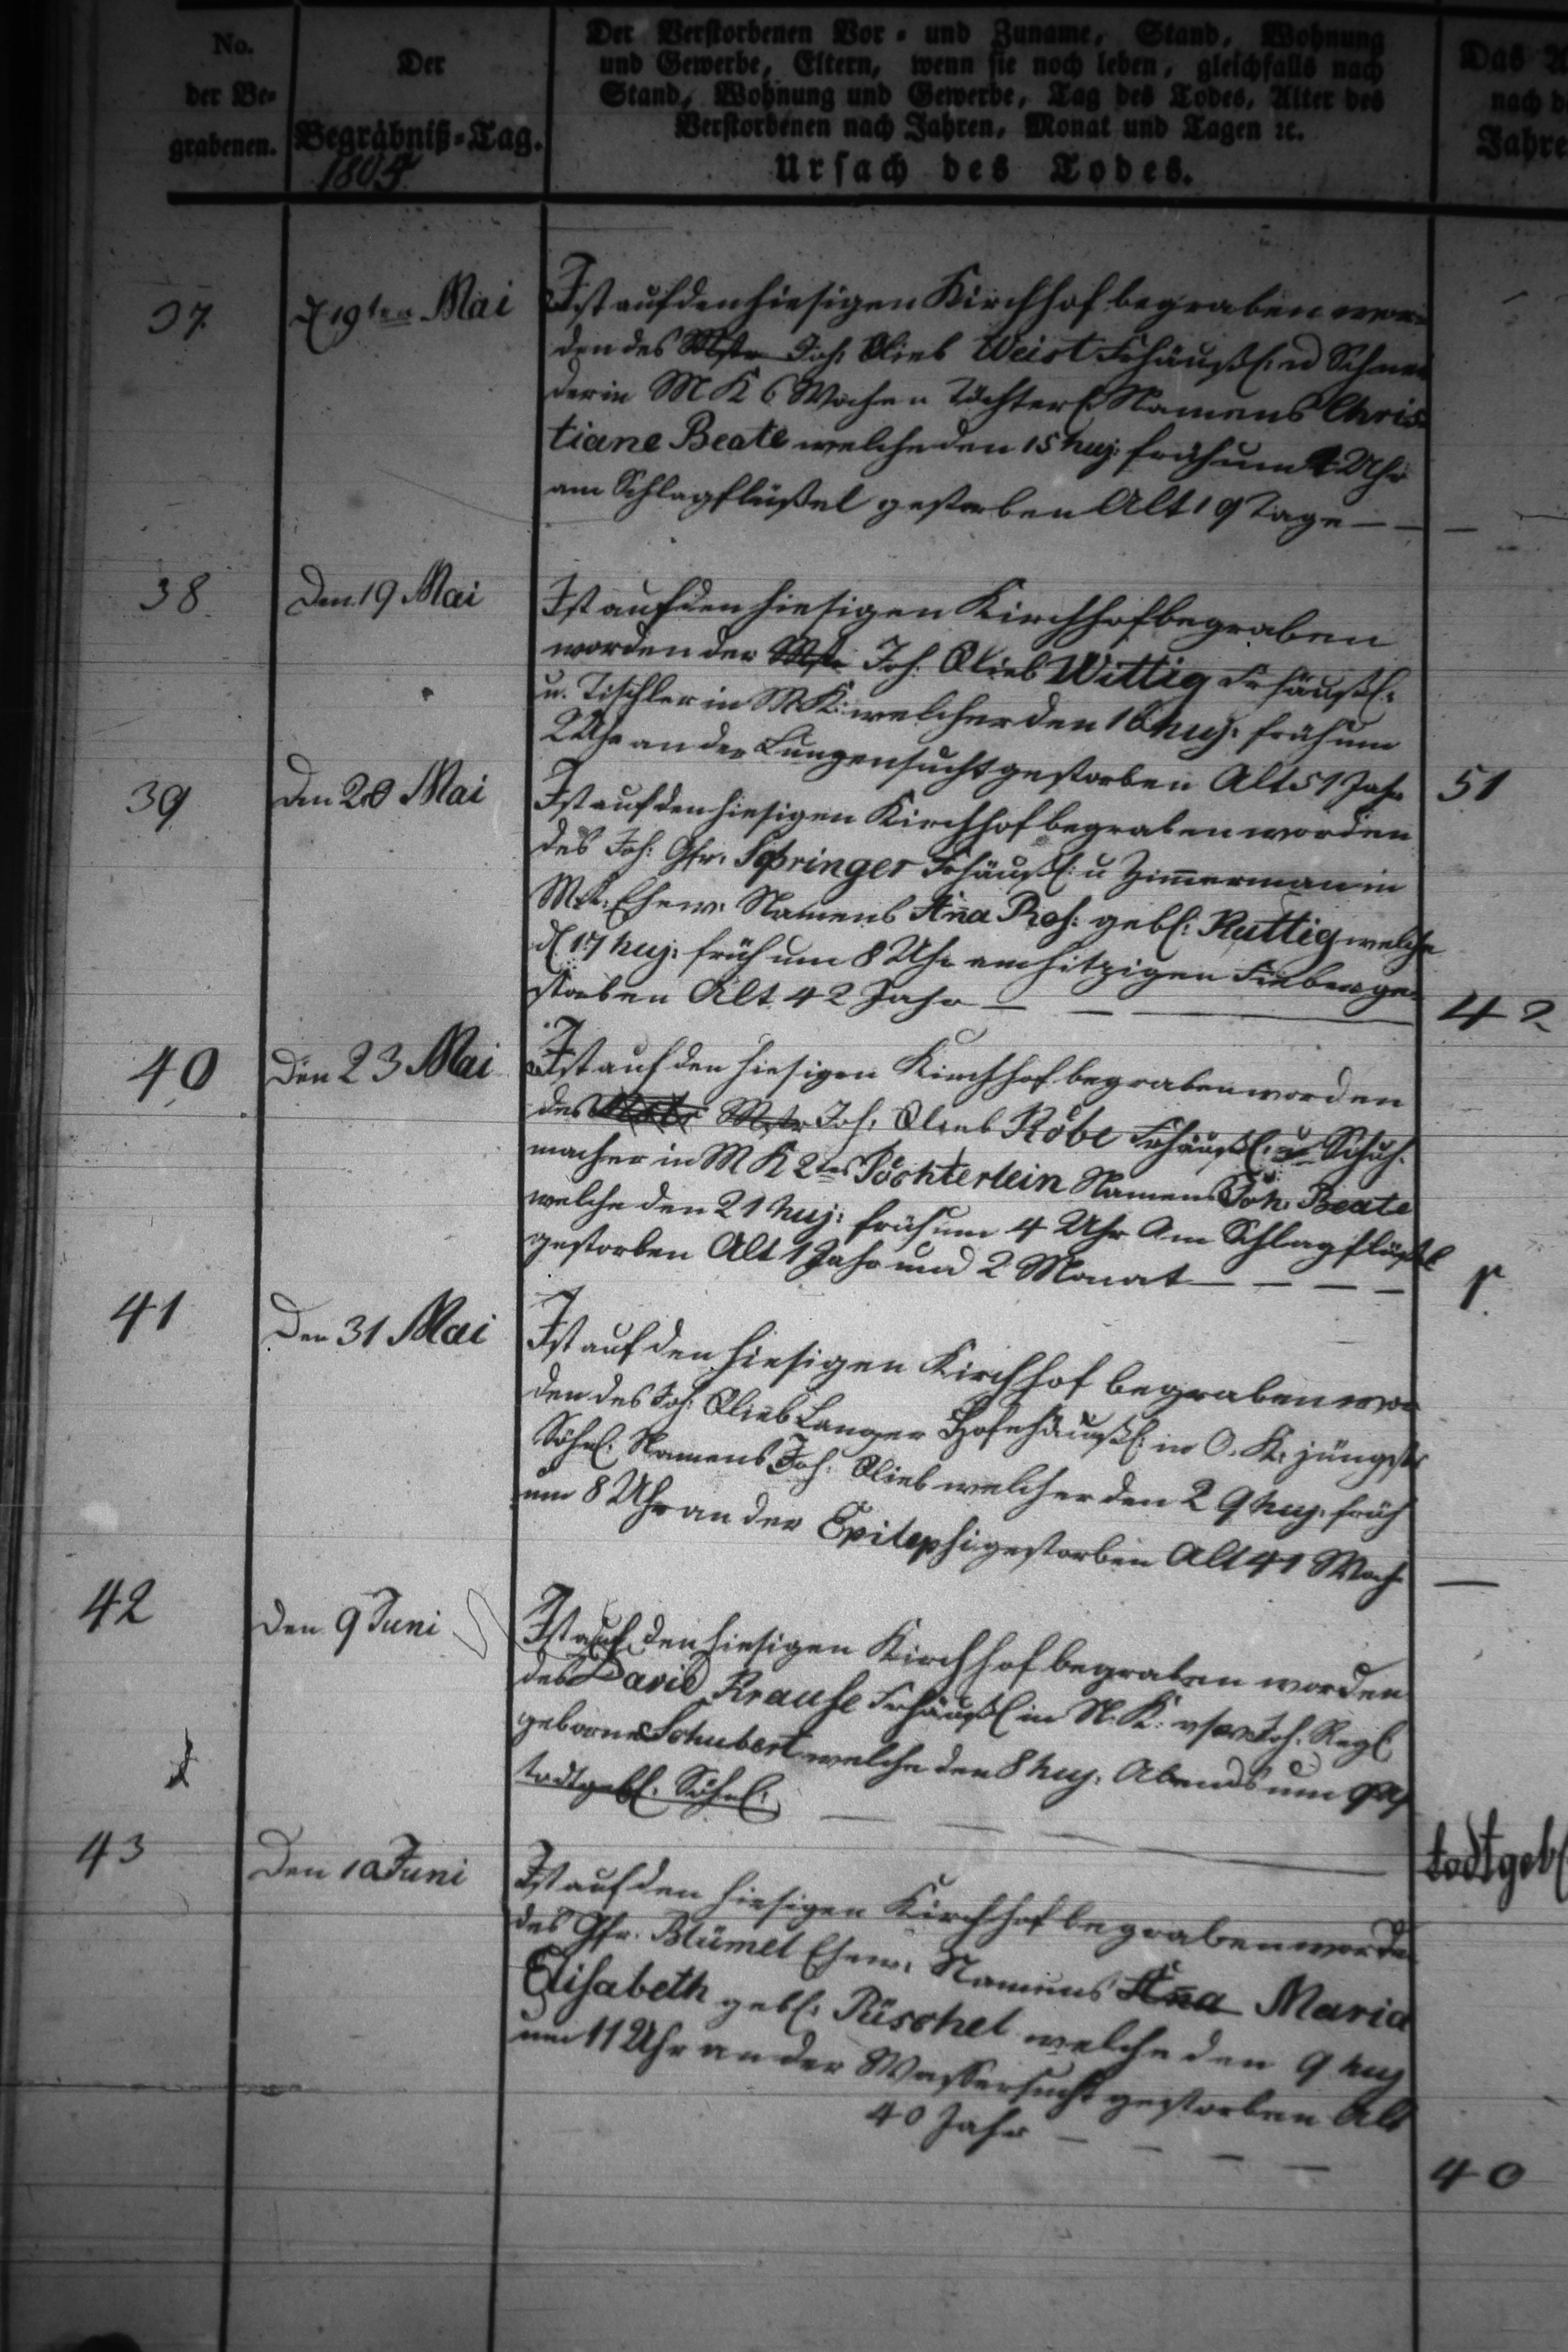 No.
der Be-
grabenen.
Der
Begräbniß-Tag.
1805
Der Verstorbenen Vor- und Zuname, Stand, Wohnung
und Gewerbe, Eltern, wenn sie noch leben, gleichfalls nach
Stand, Wohnung und Gewerbe, Tag des Todes, Alter des
Verstorbenen nach Jahren, Monat und Tagen ꝛc.
Ursach des Todes.
Das
nach
Jahre
37.
d 19ten Mai
Ist auf den hiesigen Kirchhof begraben wor
den des Mstr Joh: Glieb Weist Frhäusl: u Schnei
der in M K 6 Wochen Töchterl: Namens Chris
tiane Beate welche den 15 huj: früh um Uhr
am Schlagflüßel gestorben Alt 19 Tage — —
38
Den 19 Mai
Ist auf den hiesigen Kirchhof begraben
worden der Mstr Joh. Glieb Wittig Frhäusl:
u. Tischler in M K: welcher den 16 huj: früh um
2 Uhr an der Lungensucht gestorben Alt 51 Jahr
51
39
Den 20 Mai
Ist auf den hiesigen Kirchhof begraben worden
des Joh: Gfr: Springer Frhäusl: u Zim̅erman in
M K: Ehew: Namens An̅a Ros: gebl: Ruttig welche
d 17 huj: früh um 8 Uhr am hitzigen Fieber ge-
storben Alt 42 Jahr — —
42
40
Den 23 Mai
Ist auf den hiesigen Kirchhof begraben worden
des Mstr Joh: Glieb Röbe Frhäusl: u Schuh-
macher in M K 2tes Töchterlein Namens Joh: Beate
welche den 21 huj: früh um 4 Uhr Am Schlagflüßel
gestorben Alt 1 Jahr und 2 Monat — — —
1
41
Den 31 Mai
Ist auf den hiesigen Kirchhof begraben wor
den des Joh: Glieb Langer Hofehäusl: in O. K: jüngstes
Söhnl: Namens Joh: Glieb welcher den 29 huj: früh
um 8 Uhr an der Epilepsi gestorben Alt 41 Woch
—
42
Den 9 Juni
Ist auf den hiesigen Kirchhof begraben worden
des David Krause Frhäusl in N. K: Joh: Regl
geborne Schubert welche den 8 huj: Abends um 9 Uh
todtgebl: Söhnl:
todtgebl
43
Den 10 Juni
Ist auf den hiesigen Kirchhof begraben worden
des Gfr. Blümel Ehew: Namens An̅a Maria
Elisabeth gebl: Püschel welche den 9 huj
um 11 Uhr an der Wassersucht gestorben Alt
40 Jahr — — — —
40